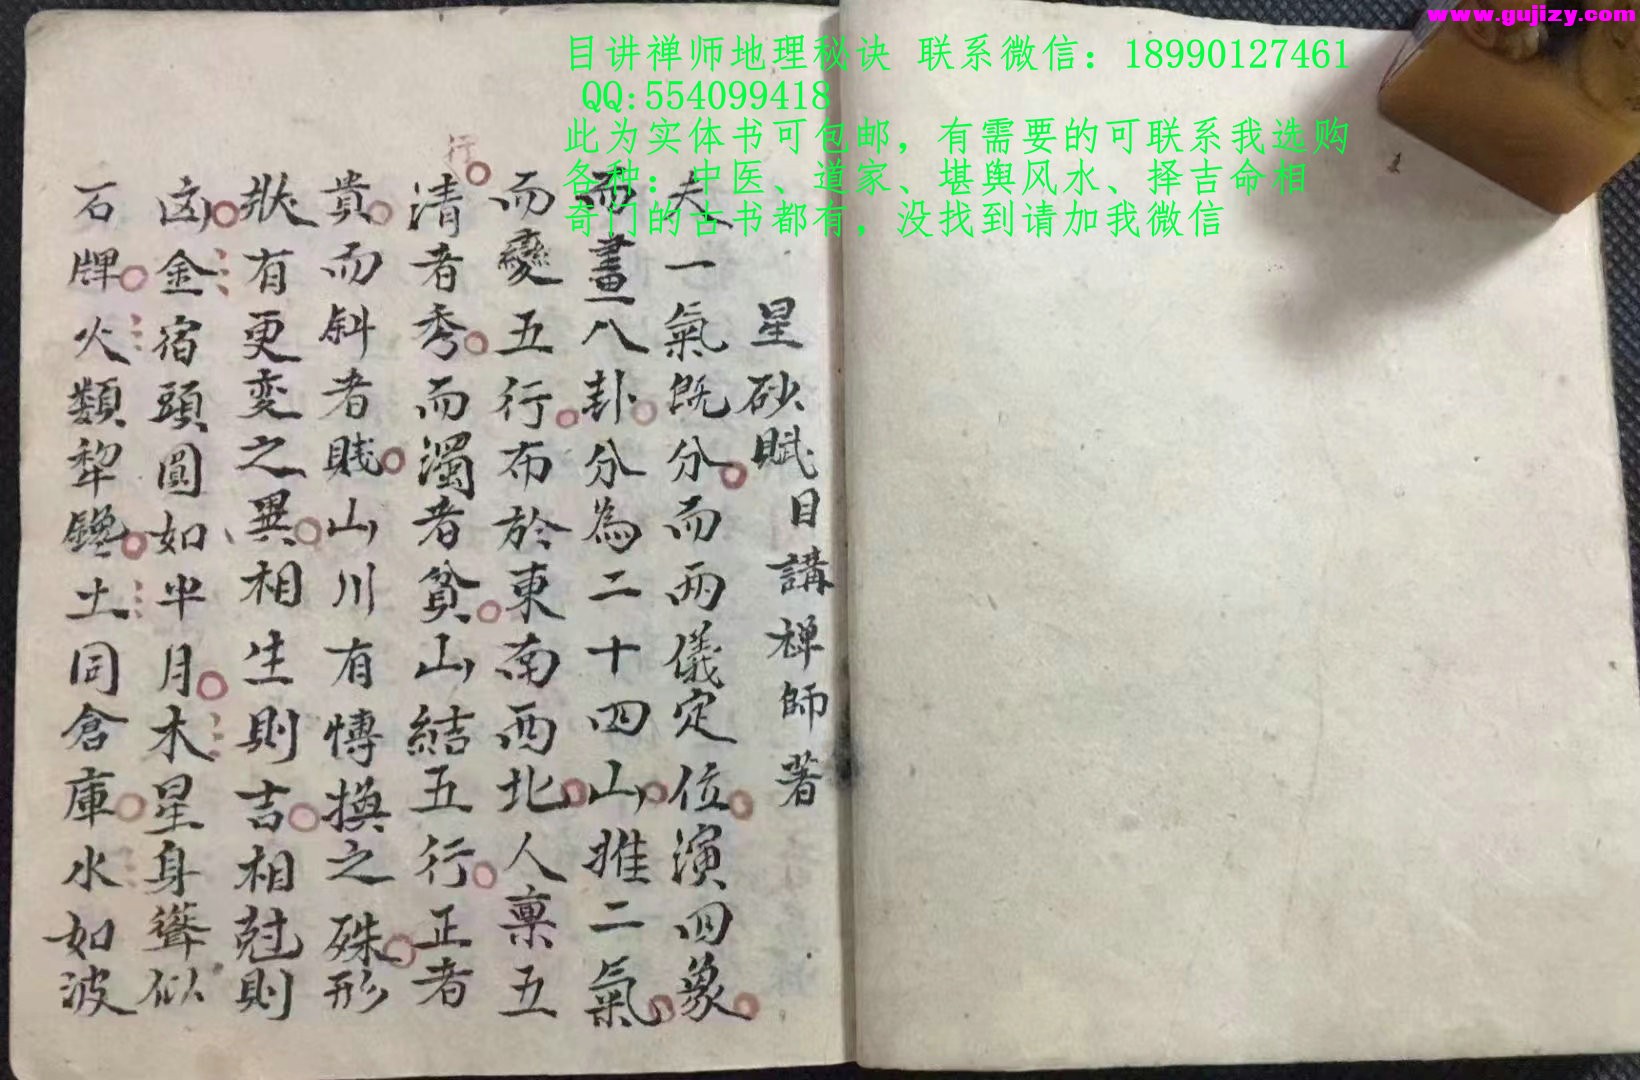 www.gujizy.com
目讲禅师地理秘诀 联系微信：18990127461
QQ:554099418
此为实体书可包邮，有需要的可联系我选购
各种：中医、道家、堪舆风水、择吉命相
奇门的古书都有，没找到请加我微信
1
星砂賦目講禅師著
夫一氣既分而两儀定位演四象
而畫八卦分為二十四山推二氣
而變五行布於東南西北人禀五
行
清者秀而濁者貧山結五行正者
貴而斜者賤山川有慱換之殊形
狀有更变之異相生則吉相尅則
凶金宿頭圓如半月木星身聳似
石牌火類犂鑱土同倉庫水如波